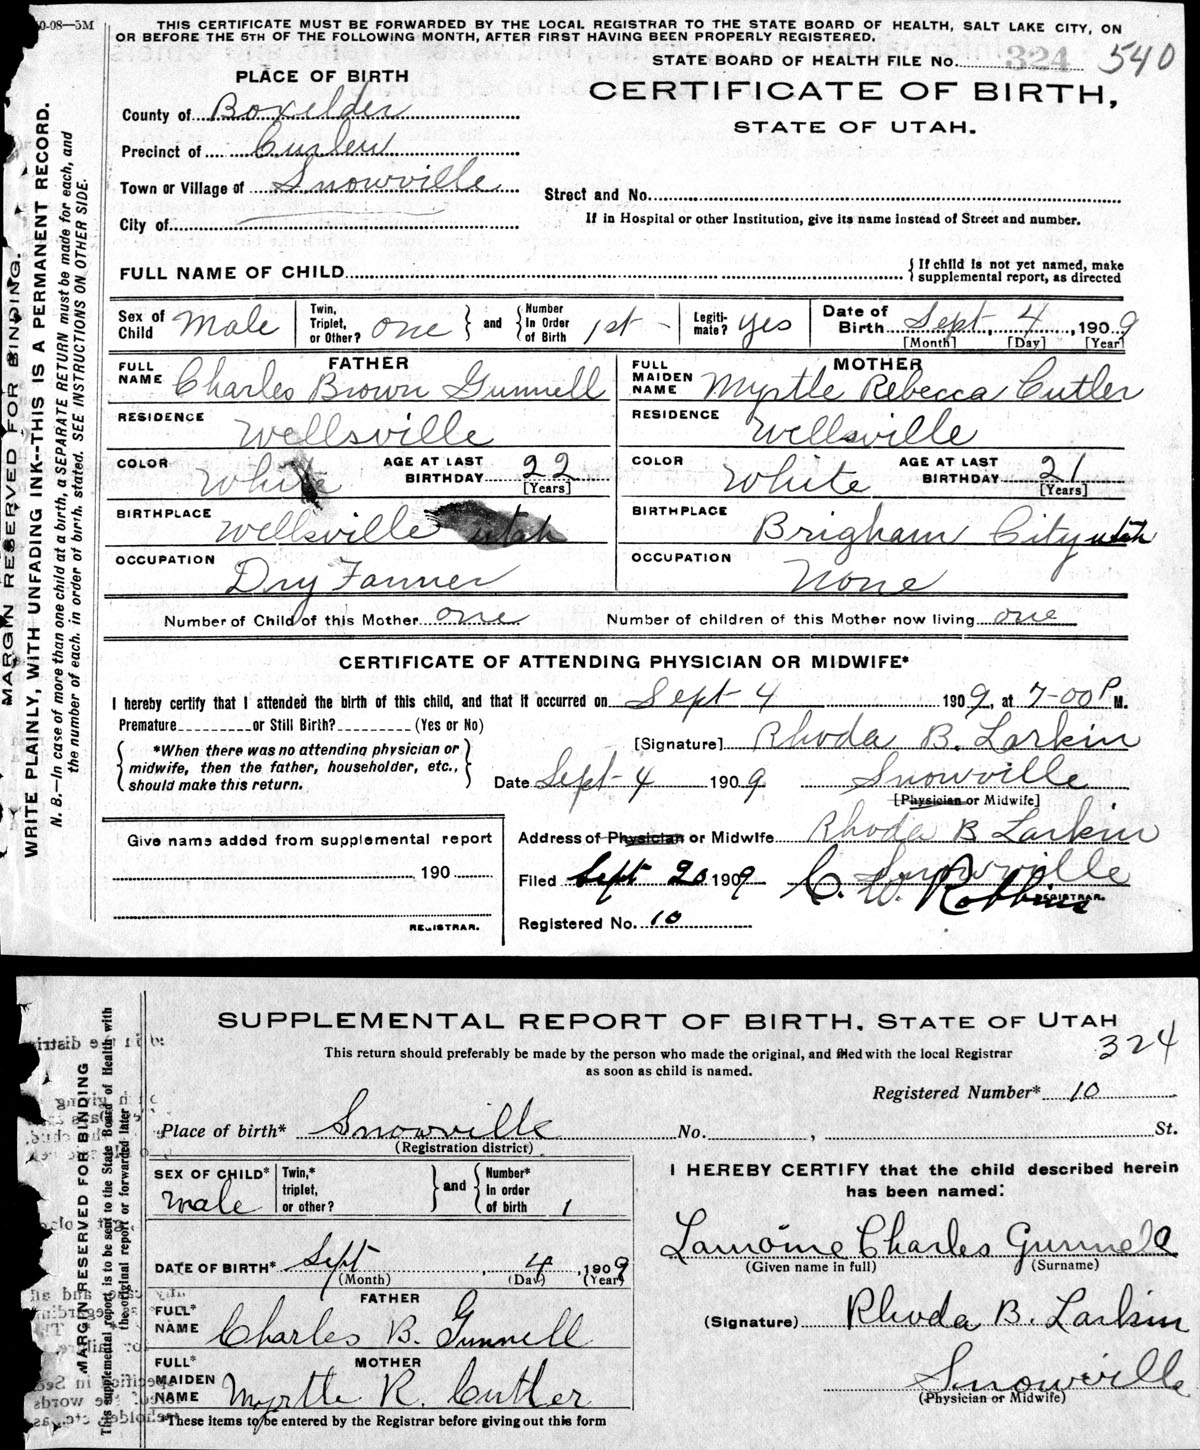 10-08—5M
THIS CERTIFICATE MUST BE FORWARDED BY THE LOCAL REGISTRAR TO THE STATE BOARD OF HEALTH, SALT LAKE CITY, ON
OR BEFORE THE 5TH OF THE FOLLOWING MONTH, AFTER FIRST HAVING BEEN PROPERLY REGISTERED.
STATE BOARD OF HEALTH FILE No. 324 540
PLACE OF BIRTH
CERTIFICATE OF BIRTH,
STATE OF UTAH.
County of Boxelder
Precinct of Curlew
Town or Village of Snowville
Street and No.
City of
If in Hospital or other Institution, give its name instead of Street and number.
FULL NAME OF CHILD
{ If child is not yet named, make
supplemental report, as directed
Sex of Child Male
Twin, Triplet, or Other? one } and { Number In Order of Birth 1st -
Legiti- mate? yes
Date of Birth Sept. 4, 1909
[Month] [Day] [Year]
FATHER
FULL NAME Charles Brown Gunnell
MOTHER
FULL MAIDEN NAME Myrtle Rebecca Cutler
RESIDENCE Wellsville
RESIDENCE Wellsville
COLOR White AGE AT LAST BIRTHDAY 22 [Years]
COLOR White AGE AT LAST BIRTHDAY 21 [Years]
BIRTHPLACE Wellsville utah
BIRTHPLACE Brigham City utah
OCCUPATION Dry Farmer
OCCUPATION None
Number of Child of this Mother one Number of children of this Mother now living one
CERTIFICATE OF ATTENDING PHYSICIAN OR MIDWIFE*
I hereby certify that I attended the birth of this child, and that it occurred on Sept 4 1909, at 7-00 P M.
Premature or Still Birth? (Yes or No)
{ *When there was no attending physician or
midwife, then the father, householder, etc.,
should make this return. }
[Signature] Rhoda B. Larkin
Date Sept 4 1909 Snowville
[Physician or Midwife]
Give name added from supplemental report
190
REGISTRAR.
Address of Physician or Midwife Rhoda B Larkin
Snowville
Filed Sept 20 1909 C. W. Robbins
REGISTRAR.
Registered No. 10
MARGIN RESERVED FOR BINDING.
WRITE PLAINLY, WITH UNFADING INK--THIS IS A PERMANENT RECORD.
N. B.—In case of more than one child at a birth, a SEPARATE RETURN must be made for each, and
the number of each. in order of birth. stated. SEE INSTRUCTIONS ON OTHER SIDE.
SUPPLEMENTAL REPORT OF BIRTH, STATE OF UTAH
324
This return should preferably be made by the person who made the original, and filed with the local Registrar
as soon as child is named.
Registered Number* 10
Place of birth* Snowville No. , St.
(Registration district)
SEX OF CHILD* male
Twin,* triplet, or other? } and { Number* In order of birth 1
I HEREBY CERTIFY that the child described herein
has been named:
Lamoine Charles Gunnell
(Given name in full) (Surname)
DATE OF BIRTH* Sept , 4 , 1909
(Month) (Day) (Year)
FATHER
FULL* NAME Charles B. Gunnell
MOTHER
FULL* MAIDEN NAME Myrtle R. Cutler
(Signature) Rhoda B. Larkin
Snowville
(Physician or Midwife)
*These items to be entered by the Registrar before giving out this form
MARGIN RESERVED FOR BINDING
This supplemental report is to be sent to the State Board of Health with
the original report or forwarded later